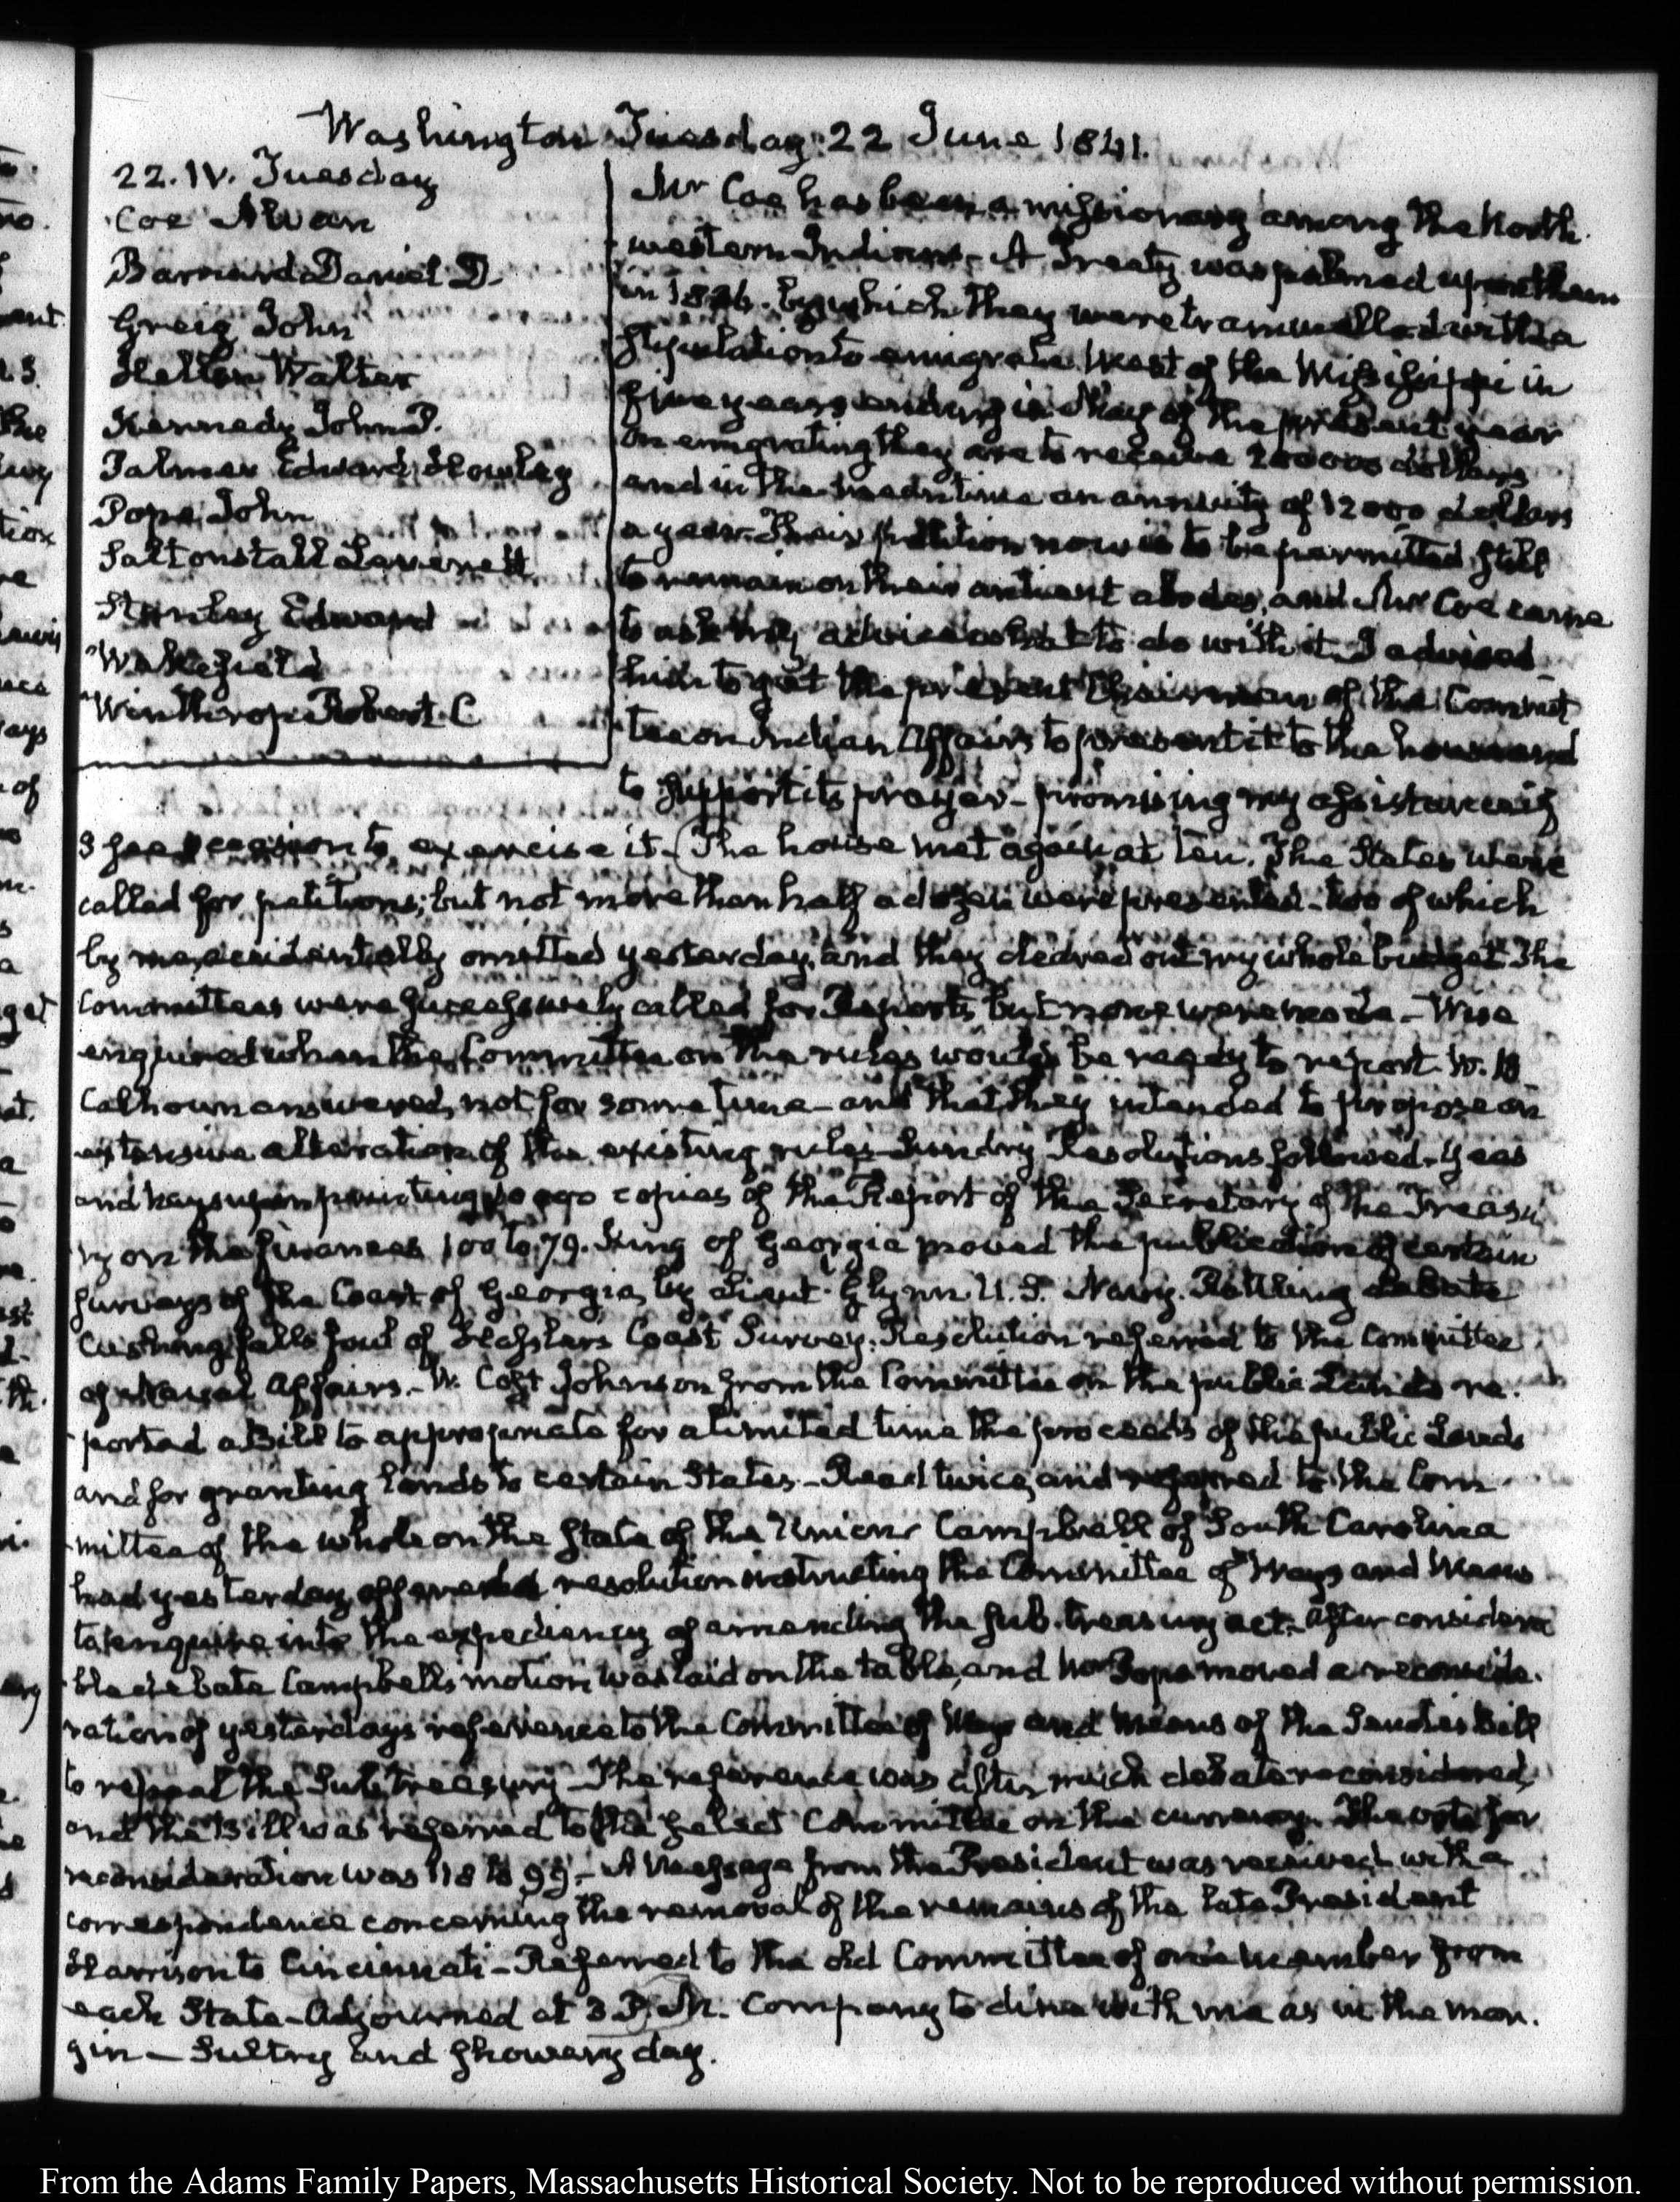 Washington Tuesday 22 June 1841.
22. IV. Tuesday
Coe Alvan
Barnard Daniel D.
Greig John
Hellen Walter
Kennedy John P.
Palmer Edward Howley
Pope John
Saltonstall Leverett
Stanley Edward
Wakefield
Winthrop Robert. C
Mr Coe has been a missionary among the North
western Indians— A Treaty was palmed upon them
in 1836. by which they were trammelled with a
stipulation to emigrate West of the Mississippi in
five years ending in May of the present year
On emigrating they are to receive 200000 dollars
and in the mean time an annuity of 12000 dollars
a year. Their petition now is to be permitted still
to remain on their antient abodes, and Mr Coe came
to ask my advice what to do with it. I advised
him to get the present Chairman of the Commit
tee on Indian Affairs to present it to the house and
to support its prayer— promising my assistance if
I see occasion to exercise it— The house met again at ten. The States where
called for petitions; but not more than half a dozen were presented— two of which
by me, accidentally omitted yesterday, and they cleared out my whole budget. The
Committees were successively called for Reports, but none were made— Wise
enquired when the Committee on the rules would be ready to report. W. B
Calhoun answered, not for some time— and that they intended to propose an
extensive alteration of the existing rules— Sundry Resolutions followed. Yeas
and Nays upon printing 10 000 copies of the Report of the Secretary of the Treasu
ry on the finances 100 to 79. King of Georgia moved the publication of certain
surveys of the Coast of Georgia, by Lieut. Glynn U. S. Navy. Rattling debate
Cushing falls foul of Hassler's Coast Survey. Resolution referred to the Committee
of Naval Affairs.— W. Cost Johnson from the Committee on the public Lands re-
ported a Bill to appropriate for a limited time the proceeds of the public Lands
and for granting lands to certain States— Read twice, and referred to the Com-
mittee of the whole on the State of the Union. Campbell of South Carolina
had yesterday offered a resolution instructing the Committee of Ways and Means
to enquire into the expediency of amending the Sub-treasury act. After considera
ble debate Campbell's motion was laid on the table, and Pope moved a reconside-
ration of yesterdays reference to the Committee of Ways and Means of the Senates Bill
to repeal the Subtreasury— The reference was after much debate reconsidered,
and the Bill was referred to the select Committee on the currency. The vote for
reconsideration was 118 to 99.— A Message from the President was received with a
correspondence concerning the removal of the remains of the late President
Harrison to Cincinnati— Referred to the old Committee of one member from
each State— Adjourned at 3 P.M. Company to dine with me as in the mar-
gin— Sultry and showery day.
From the Adams Family Papers, Massachusetts Historical Society. Not to be reproduced without permission.